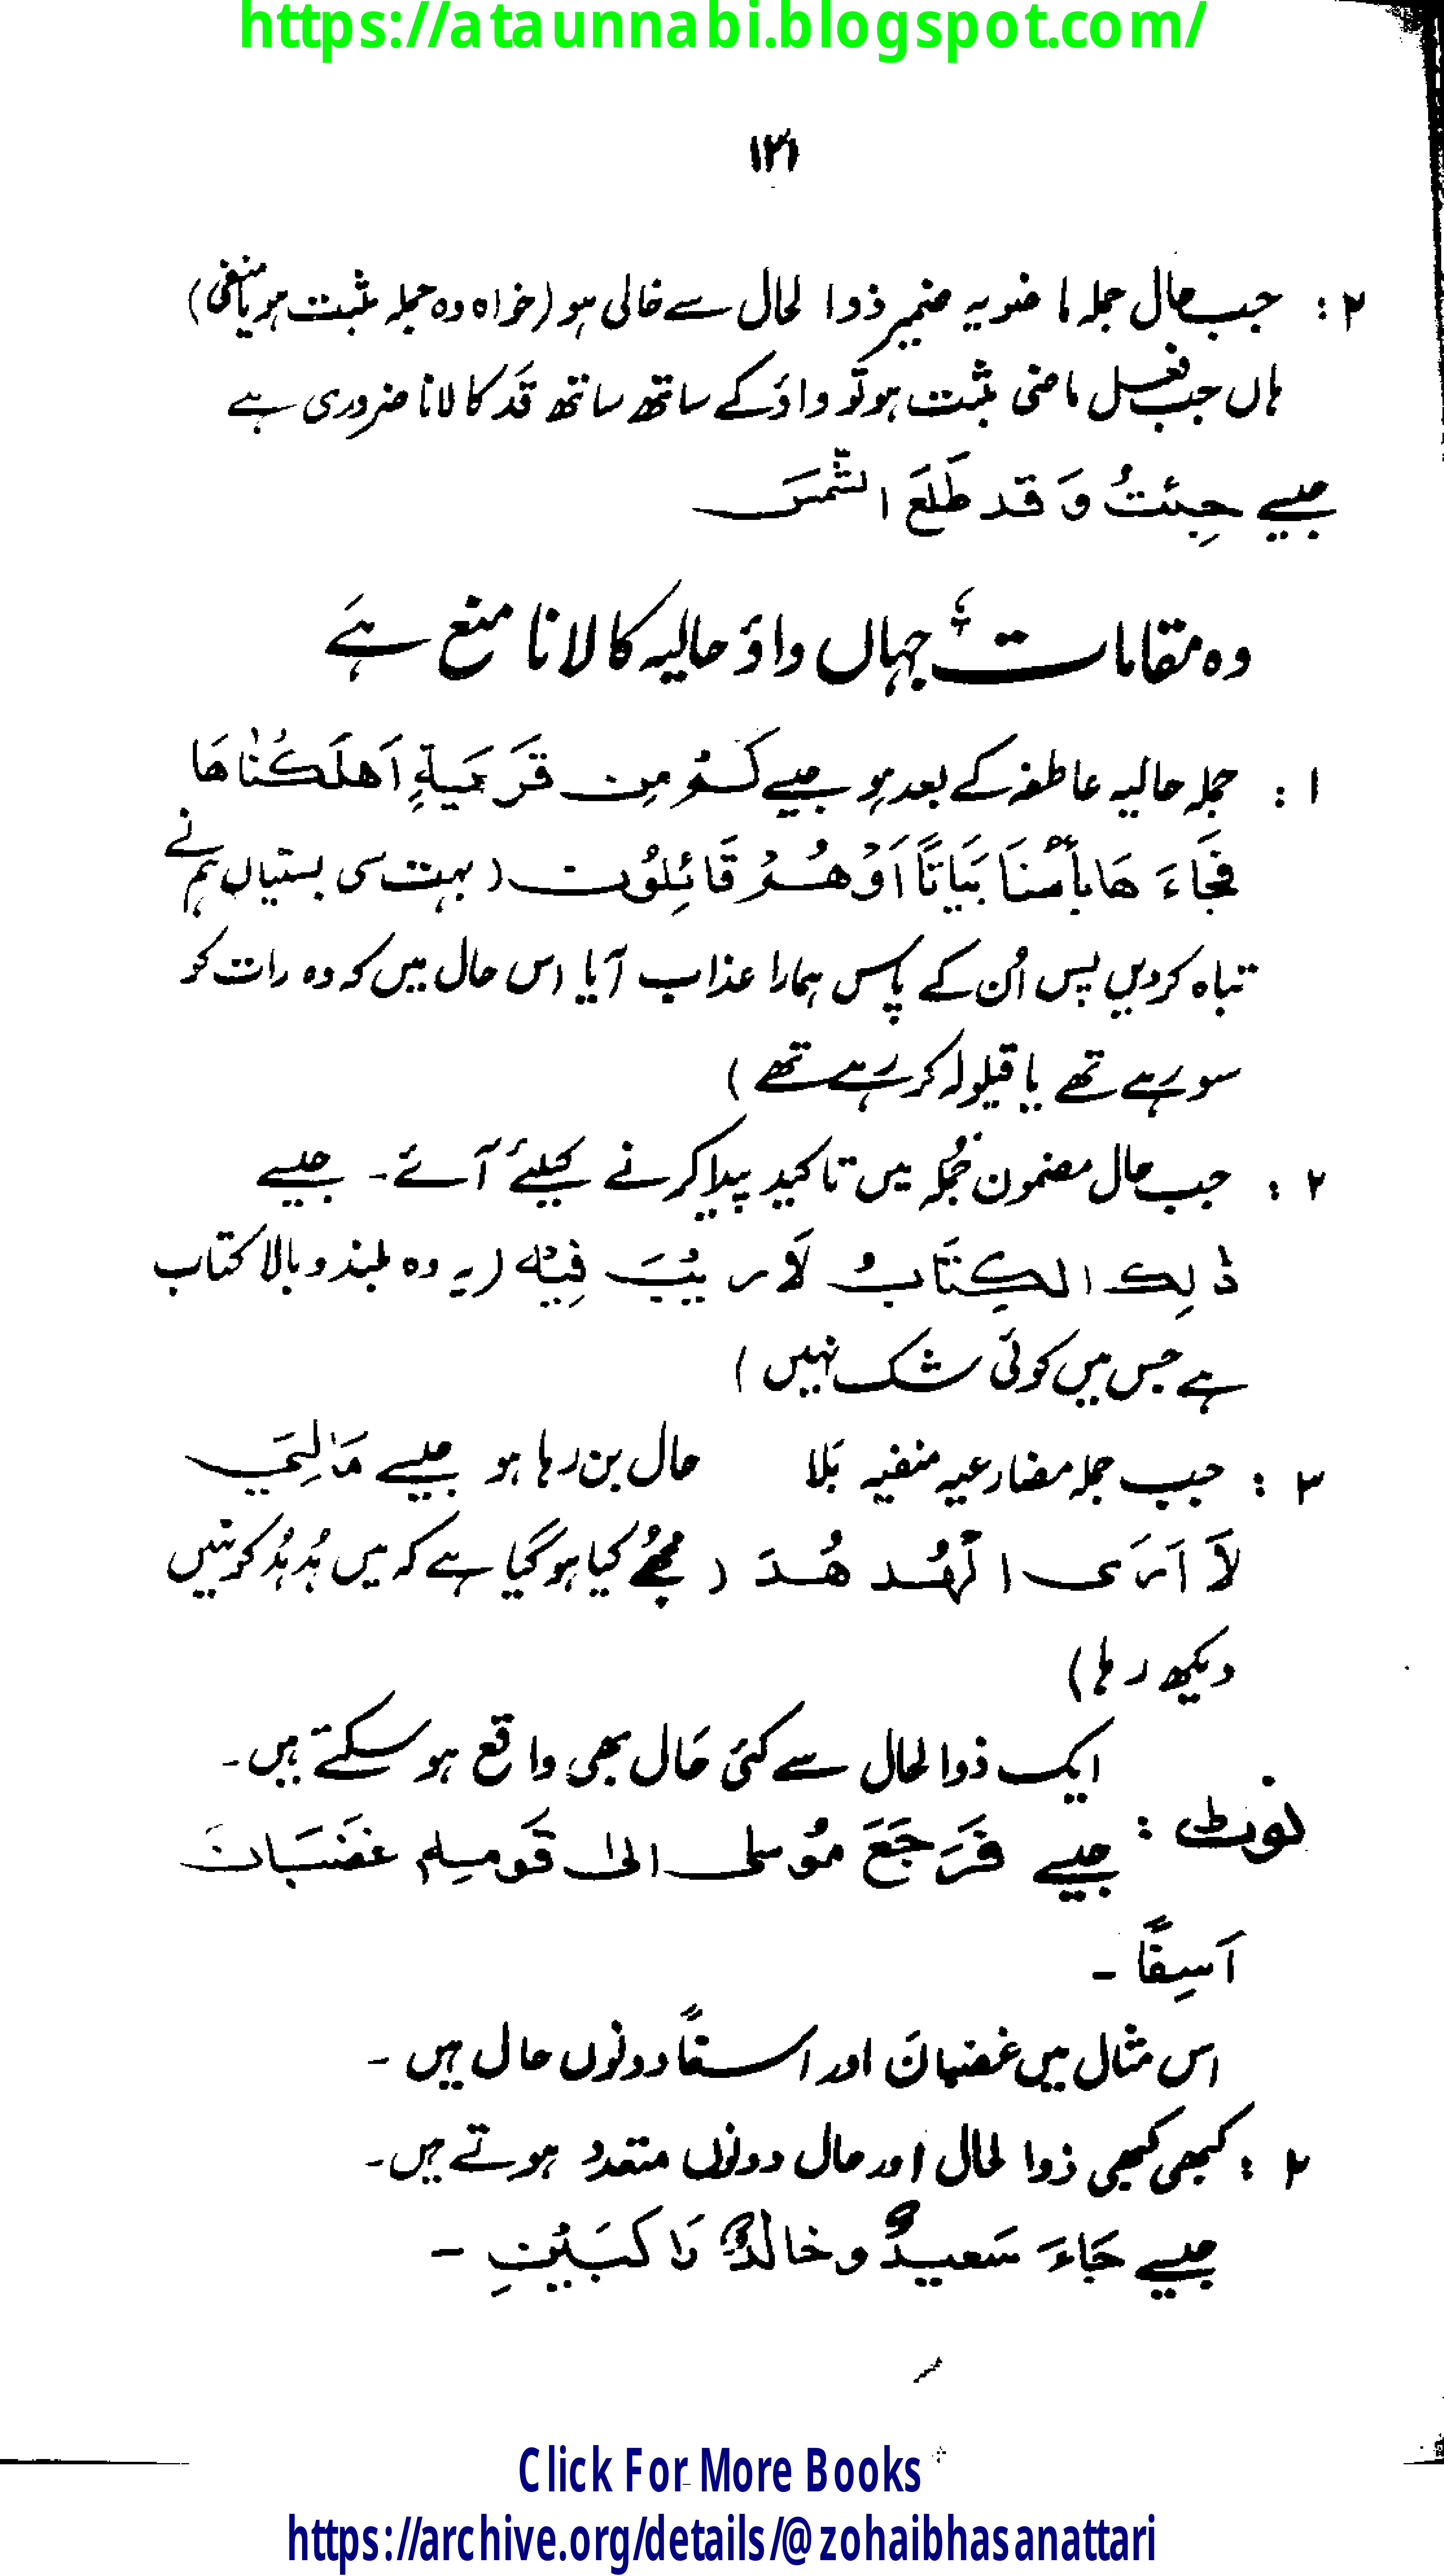 https://ataunnabi.blogspot.com/
۱۲۱
۲ : جب حال جملہ ماضویہ ضمیر ذوالحال سے خالی ہو (خواہ وہ جملہ مثبت ہو یا منفی)
ہاں جب فعل ماضی مثبت ہو تو واؤ کے ساتھ ساتھ قَد کا لانا ضروری ہے
جیسے جِئتُ وَ قد طَلَعَ الشَّمسَ
وہ مقامات جہاں واؤ حالیہ کا لانا منع ہے
۱ : جملہ حالیہ عاطفہ کے بعد ہو جیسے كَمْ مِن قَرْيَةٍ اَهلَكْنَاهَا
فَجَاءَ هَا بأسُنَا بَيَاتًا اَوْ هُمْ قَائِلُون (بہت سی بستیاں ہم نے
تباہ کردیں پس اُن کے پاس ہمارا عذاب آیا اس حال میں کہ وہ رات کو
سو رہے تھے یا قیلولہ کر رہے تھے)
۲ : جب حال مضمون جُملہ میں تاکید پیدا کرنے کیلئے آئے۔ جیسے
ذٰلِك الكِتَابُ لَا رَيْبَ فِيْه (یہ وہ بلند و بالا کتاب
ہے جس میں کوئی شک نہیں)
۳ : جب جملہ مضارعیہ منفیہ بَلا حال بن رہا ہو جیسے مَالِيَ
لَا اَرَى الْهُد هُدَ (مجھے کیا ہو گیا ہے کہ میں ہُد ہُد کو نہیں
دیکھ رہا)
ایک ذوالحال سے کئی حَال بھی واقع ہو سکتے ہیں۔
نوٹ : جیسے فَرَجَعَ مُوسٰى الىٰ قَومِهٖ غضبَان
اَسِفًا ۔
اس مثال میں غضبانَ اور اسفاً دونوں حال ہیں ۔
۲ : کبھی کبھی ذوالحال اور حال دونوں متعدد ہوتے ہیں۔
جیسے جَاءَ سَعيدٌ و خالدٌ رَاكبَيْنِ ۔
Click For More Books
https://archive.org/details/@zohaibhasanattari